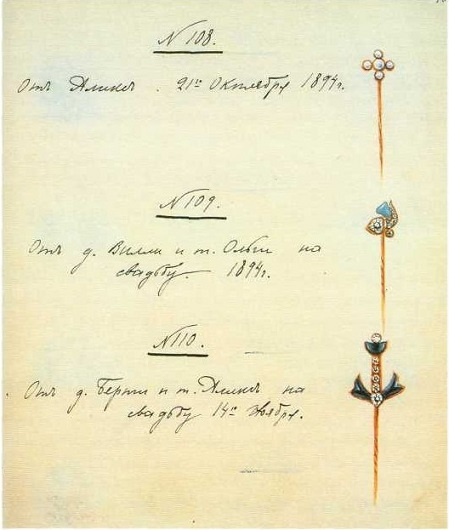 N 108.
Отъ Аликсъ. 21го Октября 1894г.
N 109.
Отъ д. Вилли и т. Ольги на
свадьбу. 1894г.
N 110.
Отъ д. Берти и т. Аликсъ на
свадьбу 14го ноября.